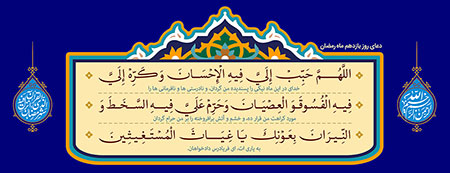 دعای روز یازدهم ماه رمضان
اللَّهُمَّ حَبِّبْ إِلَيَّ فِيهِ الْإِحْسَانَ وَ كَرِّهْ إِلَيَّ
خدای در این ماه نیکی را پسندیده من گردان، و نادرستی ها و نافرمانی ها را
فِيهِ الْفُسُوقَ وَ الْعِصْيَانَ وَ حَرِّمْ عَلَيَّ فِيهِ السَّخَطَ وَ
مورد کراهت من قرار ده، و خشم و آتش برافروخته را بر من حرام گردان
النِّيرَانَ بِعَوْنِكَ يَا غِيَاثَ الْمُسْتَغِيثِينَ
به یاری ات، ای فریادرس دادخواهان.